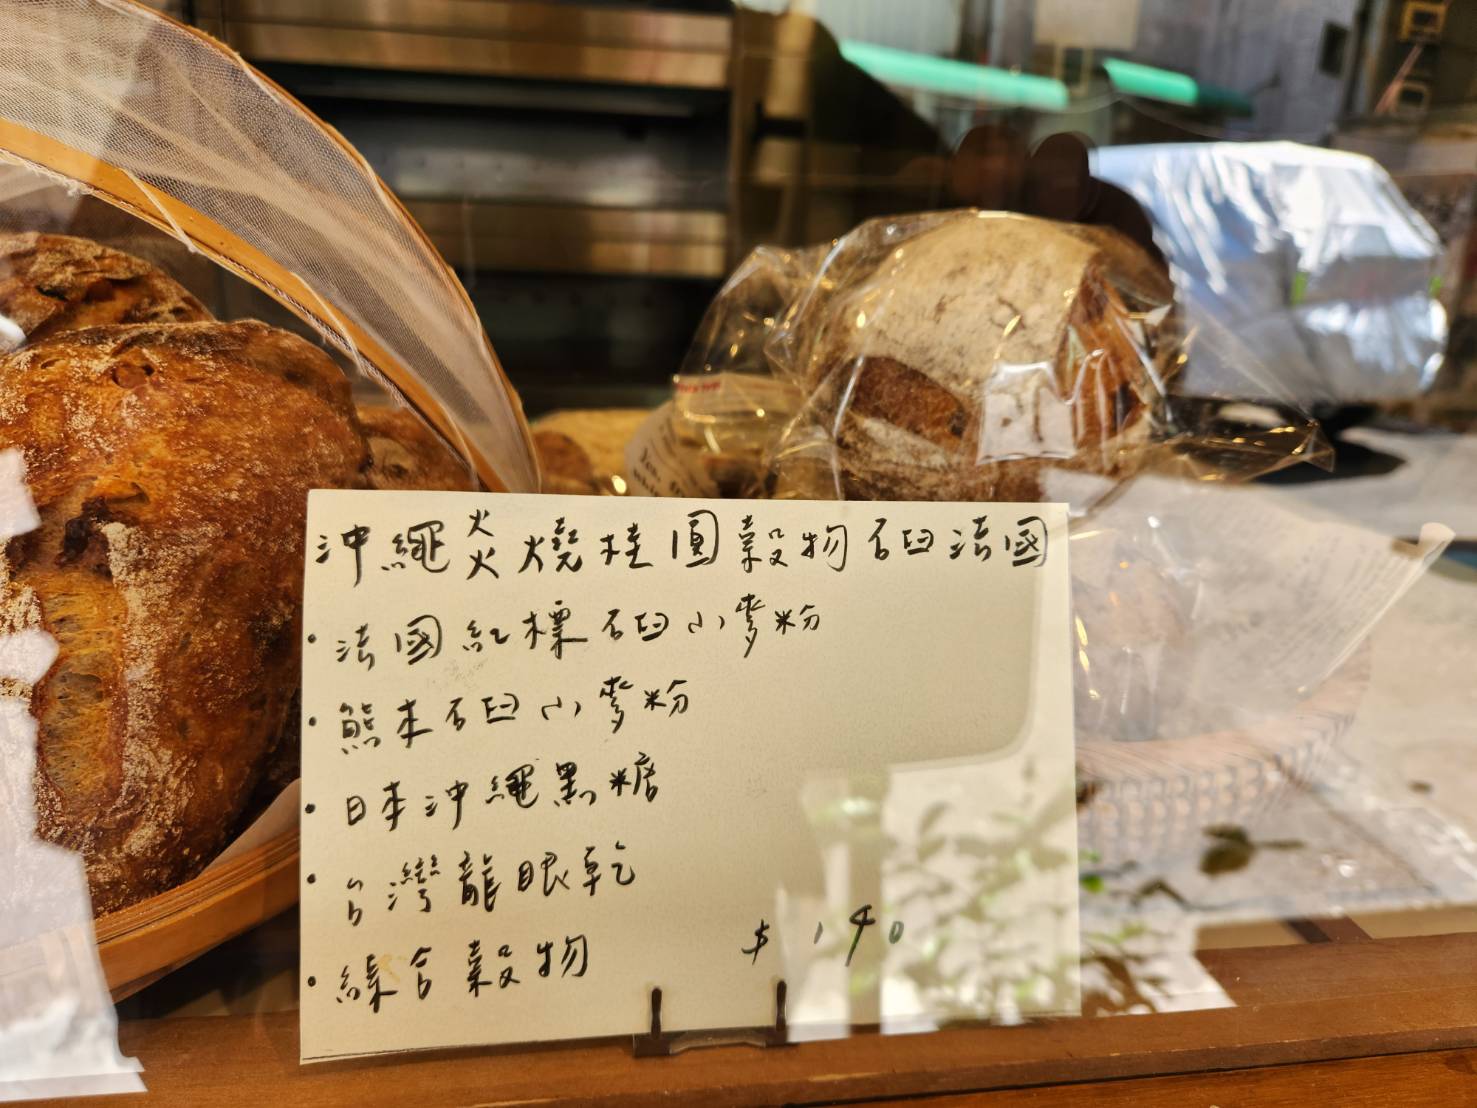 沖繩炎燒桂圓穀物石臼法國
・法國紅標石臼小麥粉
・熊本石臼小麥粉
・日本沖繩黑糖
・台灣龍眼乾
・綜合穀物
$ 190